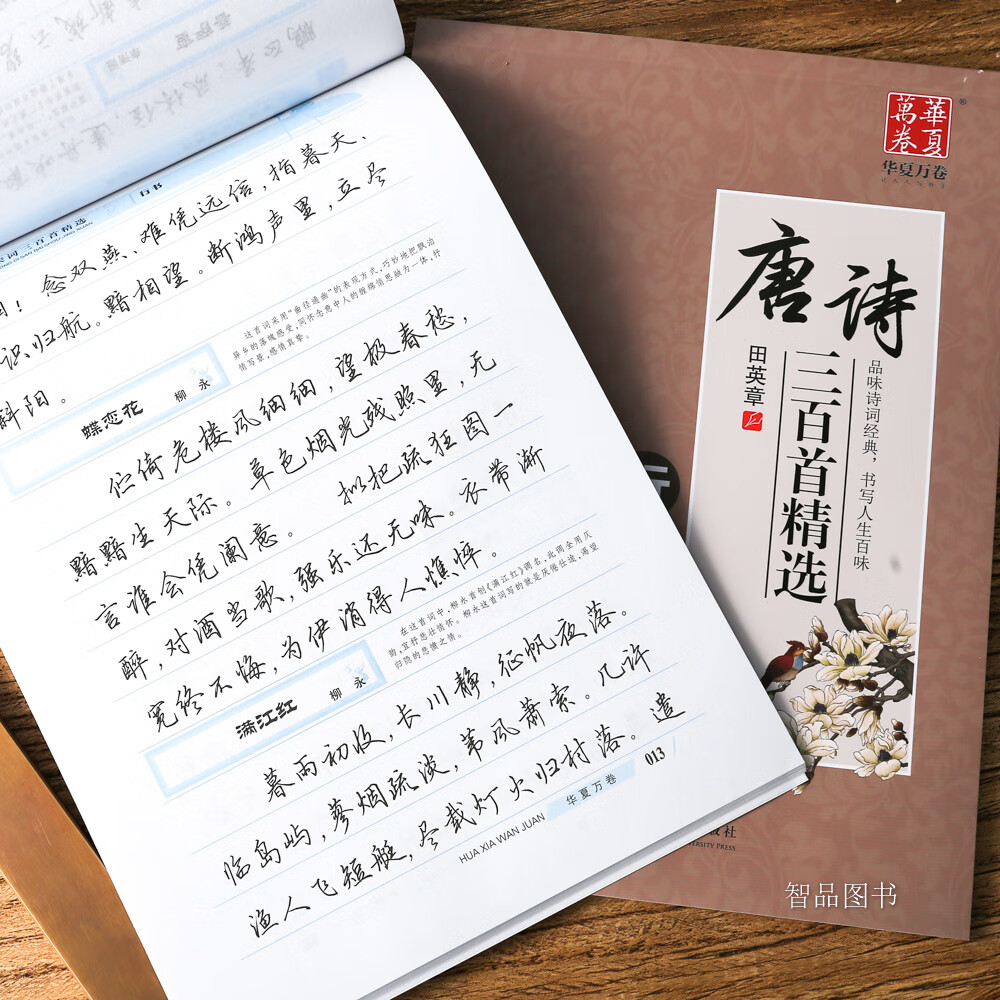 词三百首精选
行书
目！念双燕、难凭远信，指暮天、
识归航。黯相望。断鸿声里，立尽
斜阳。
蝶恋花 柳永
这首词采用“曲径通幽”的表现方式，巧妙地把飘泊
异乡的落魄感受，同怀念意中人的缠绵情思融为一体，抒
情写景，感情真挚。
伫倚危楼风细细，望极春愁，
黯黯生天际。草色烟光残照里，无
言谁会凭阑意。 拟把疏狂图一
醉，对酒当歌，强乐还无味。衣带渐
宽终不悔，为伊消得人憔悴。
满江红 柳永
在这首词中，柳永首创《满江红》调名，此调全用仄
韵，宜抒悲壮情怀。柳永这首词写的就是厌倦仕途，渴望
归隐的悲愤之情。
暮雨初收，长川静，征帆夜落。
临岛屿，蓼烟疏淡，苇风萧索。几许
渔人飞短艇，尽载灯火归村落。遣
HUA XIA WAN JUAN 华夏万卷 013
華夏
萬卷
®
华夏万卷
唐诗
三百首精选
田英章
品味诗词经典，书写人生百味
行
社
VERSITY PRESS
智品图书